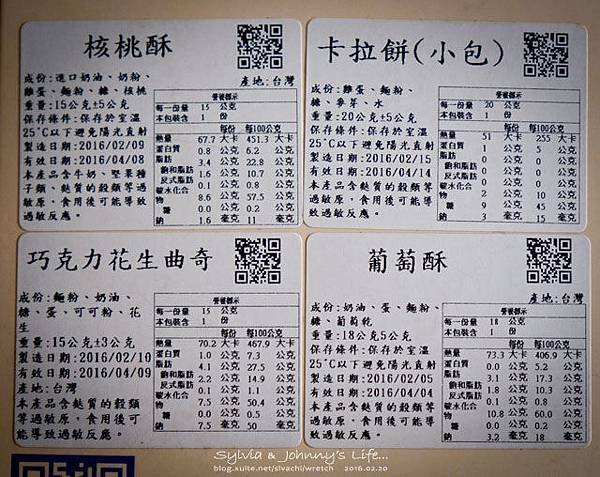 核桃酥
成份:進口奶油、奶粉、
雞蛋、麵粉、糖、核桃
重量:15公克±5公克
保存條件:保存於室溫
25°C以下避免陽光直射
製造日期:2016/02/09
有效日期:2016/04/08
本產品含牛奶、堅果種
子類、麩質的穀類等過
敏原,食用後可能導致
過敏反應。
產地:台灣
營養標示
每一份量 15 公克
本包裝含 1 份
每份 每100公克
熱量 67.7 大卡 451.3 大卡
蛋白質 0.8 公克 5.2 公克
脂肪 3.4 公克 22.8 公克
飽和脂肪 1.6 公克 10.7 公克
反式脂肪 0.1 公克 0.8 公克
碳水化合物 8.6 公克 57.5 公克
糖 0.0 公克 0.2 公克
鈉 1.6 毫克 11 毫克
卡拉餅(小包)
成份:雞蛋、麵粉、
糖、麥芽、水
重量:20公克±5公克
保存條件:保存於室溫
25°C以下避免陽光直射
製造日期:2016/02/15
有效日期:2016/04/14
本產品含麩質的穀類等
過敏原,食用後可能導
致過敏反應。
營養標示
每一份量 20 公克
本包裝含 1 份
每份 每100公克
熱量 51 大卡 255 大卡
蛋白質 1 公克 5 公克
脂肪 0 公克 0 公克
飽和脂肪 0 公克 0 公克
反式脂肪 0 公克 0 公克
碳水化合物 2 公克 10 公克
糖 9 公克 45 公克
鈉 3 毫克 15 毫克
巧克力花生曲奇
成份:麵粉、奶油、
糖、蛋、可可粉、花
生
重量:15公克±3公克
製造日期:2016/02/10
有效日期:2016/04/09
產地:台灣
本產品含麩質的穀類
等過敏原,食用後可
能導致過敏反應。
營養標示
每一份量 15 公克
本包裝含 1 份
每份 每100公克
熱量 70.2 大卡 467.9 大卡
蛋白質 1.0 公克 7.3 公克
脂肪 4.1 公克 27.5 公克
飽和脂肪 2.2 公克 14.9 公克
反式脂肪 0.1 公克 1.1 公克
碳水化合物 7.5 公克 50.4 公克
糖 0.0 公克 0.5 公克
鈉 7.5 毫克 50 毫克
葡萄酥
產地:台灣
成份:奶油、蛋、麵粉、
糖、葡萄乾
重量:18公克5公克
保存條件:保存於室溫
25°C以下避免陽光直射
製造日期:2016/02/05
有效日期:2016/04/04
本產品含麩質的穀類等
過敏原,食用後可能導
致過敏反應。
營養標示
每一份量 18 公克
本包裝含 1 份
每份 每100公克
熱量 73.3 大卡 406.9 大卡
蛋白質 公克 公克
脂肪 3.1 公克 17.3 公克
飽和脂肪 1.8 公克 10.3 公克
反式脂肪 公克 公克
碳水化合物 10.8 公克 60.0 公克
糖 0.0 公克 公克
鈉 3.2 毫克 18 毫克
Sylvia & Johnny's Life...
blog.xuite.net/slvachl/wretch 2016.02.20